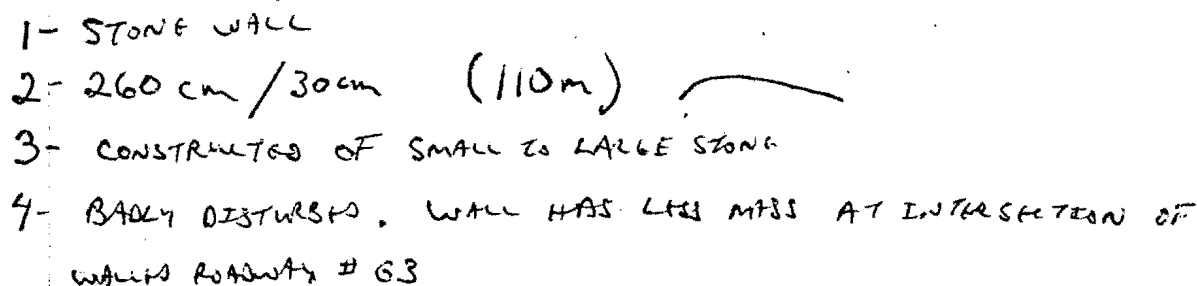 1- STONE WALL
2- 260 cm/30cm (110m)
3- CONSTRUCTED OF SMALL TO LARGE STONE
4- BADLY DISTURBED. WALL HAS LESS MASS AT INTERSECTION OF
WALLED ROADWAY # 63